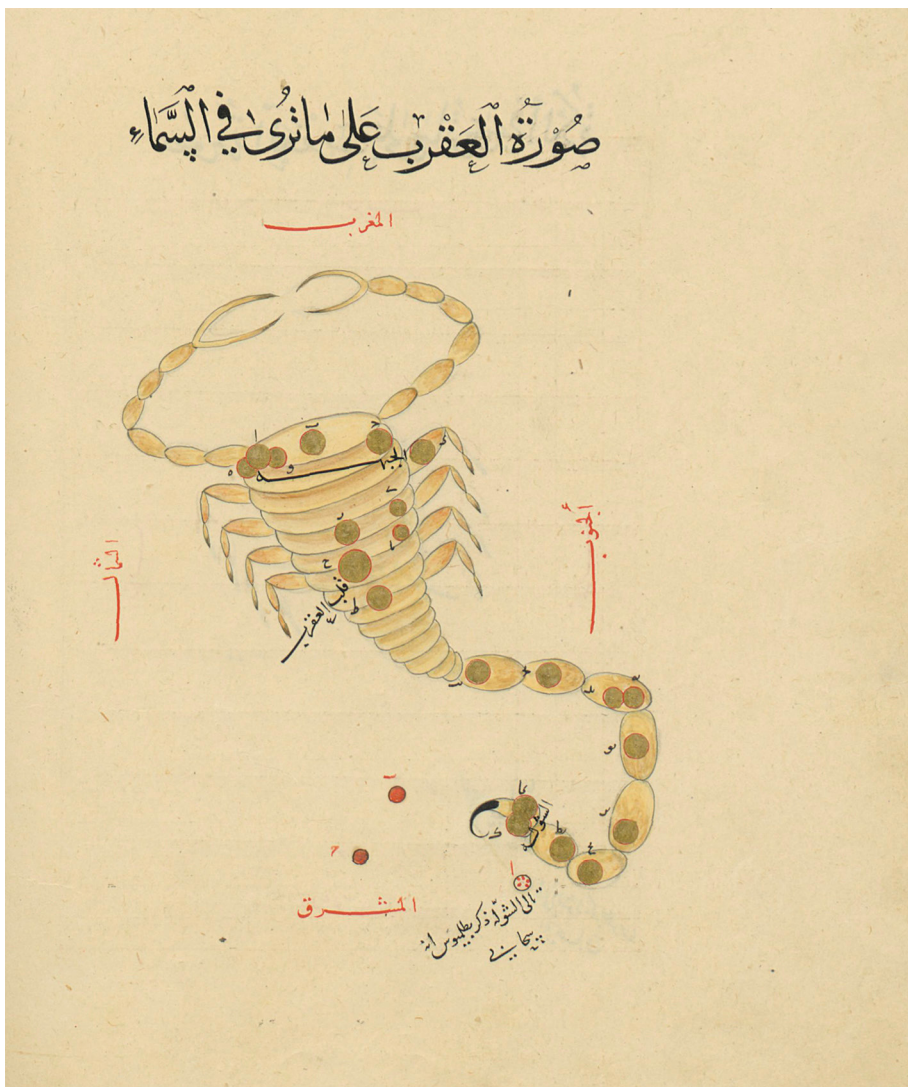 صُوْرَةُ العَقْرَبِ عَلىٰ مَا تُرىٰ فِي السَّمَاءِ
المغرب
ا
ب
ح
و
ه
الجبهة
الجنوب
الشمال
ح
قلب العقرب
ط
ط
الشولة
ك
ا
المشرق
تالى الشولة ذكر بطلميوس انه
سحابي